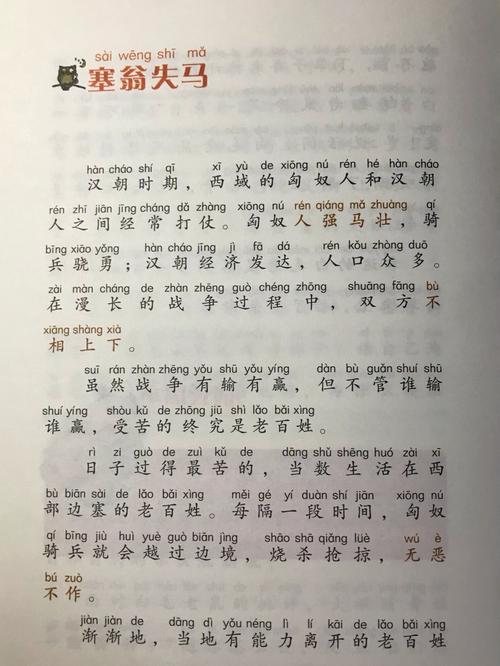 sài wēng shī mǎ
塞翁失马
hàn cháo shí qī xī yù de xiōng nú rén hé hàn cháo
汉朝时期，西域的匈奴人和汉朝
rén zhī jiān jīng cháng dǎ zhàng xiōng nú rén qiáng mǎ zhuàng qí
人之间经常打仗。匈奴人强马壮，骑
bīng xiāo yǒng hàn cháo jīng jì fā dá rén kǒu zhòng duō
兵骁勇；汉朝经济发达，人口众多。
zài màn cháng de zhàn zhēng guò chéng zhōng shuāng fāng bù
在漫长的战争过程中，双方不
xiāng shàng xià
相上下。
suī rán zhàn zhēng yǒu shū yǒu yíng dàn bù guǎn shuí shū
虽然战争有输有赢，但不管谁输
shuí yíng shòu kǔ de zhōng jiū shì lǎo bǎi xìng
谁赢，受苦的终究是老百姓。
rì zi guò de zuì kǔ de dāng shǔ shēng huó zài xī
日子过得最苦的，当数生活在西
bù biān sài de lǎo bǎi xìng měi gé yí duàn shí jiān xiōng nú
部边塞的老百姓。每隔一段时间，匈奴
qí bīng jiù huì yuè guò biān jìng shāo shā qiǎng lüè wú è
骑兵就会越过边境，烧杀抢掠，无恶
bú zuò
不作。
jiàn jiàn de dāng dì yǒu néng lì lí kāi de lǎo bǎi xìng
渐渐地，当地有能力离开的老百姓